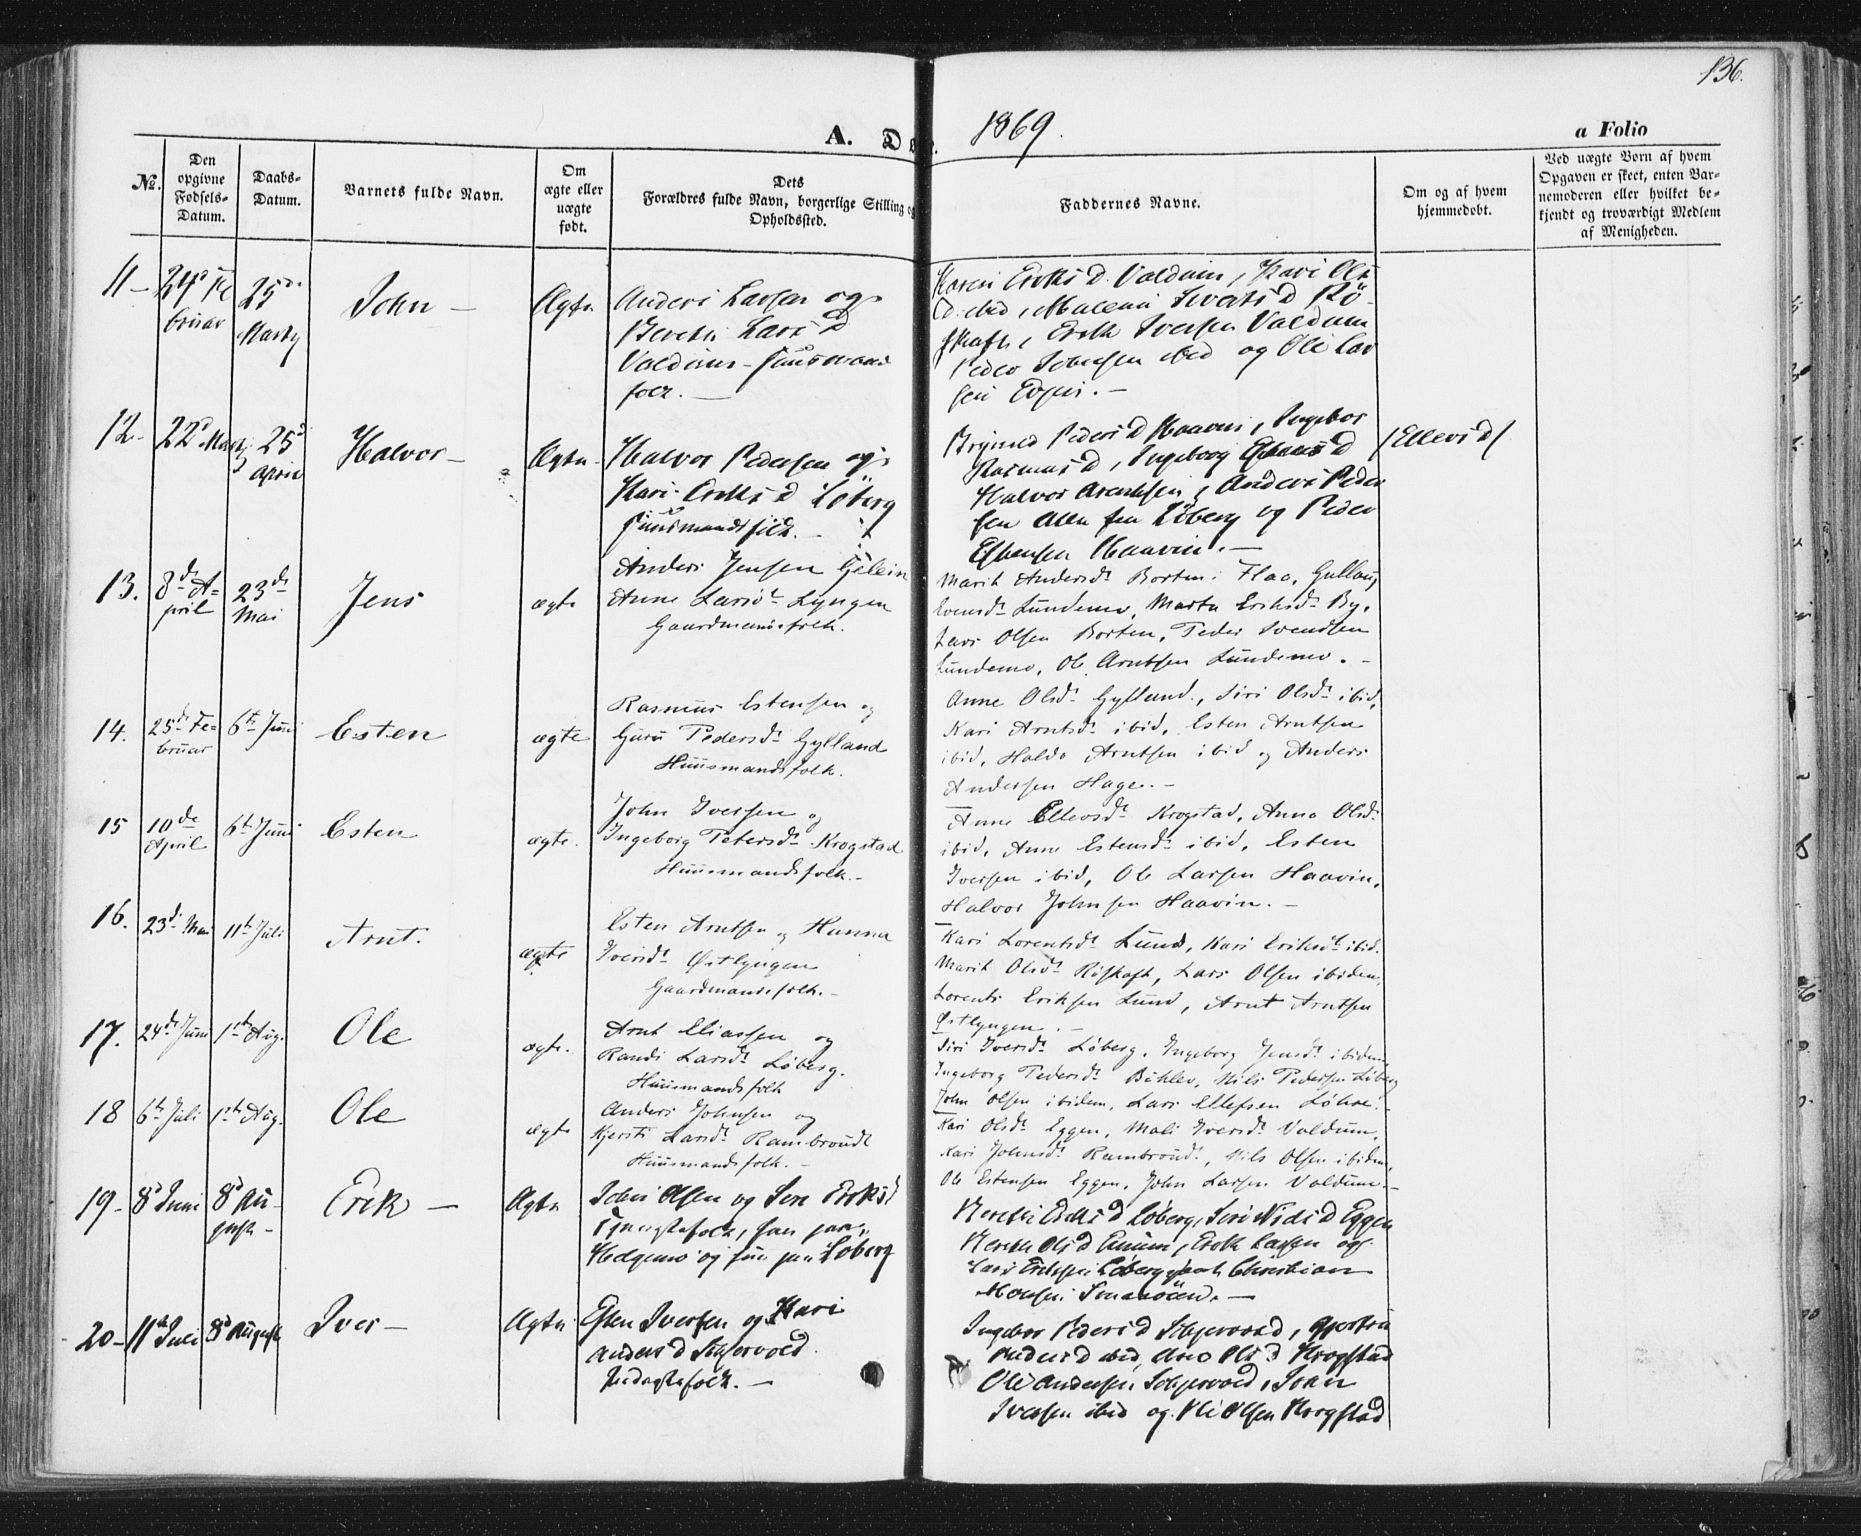 136.
A. Døbte. 1869. a Folio
No.
Den opgivne Fødsels-Datum.
Daabs-Datum.
Barnets fulde Navn.
Om ægte eller uægte født.
Dets Forældres fulde Navn, borgerlige Stilling og Opholdssted.
Faddernes Navne.
Om og af hvem hjemmedøbt.
Ved uægte Børn af hvem Opgaven er skeet, enten Barnemoderen eller hvilket bekjendt og troværdigt Medlem af Menigheden.
11 – 24d Februar 25de Marts John – Ægte
Anders Larsen og
Berethe Larsd
Valdum – Huusmands
folk. –
Karen Eriksd. Valdum, Kari Ols
d. ibid, Malena Sivertsd Rö-
skaft, Erik Iversen Valdum
Peder Johnsen ibid og Ole Lar
sen
12 – 22d Marts 25d April Halvor – Ægte
Halvor Pedersen og
Kari Eriksd Löberg
Huusmandsfolk. –
Pedersd Haavin, Ingebor
Rasmusd, Ingeborg Estensd /Ellevsd/
Halvor Arentsen, Anders Peder
sen Löberg og Peder
Estensen Haavin. –
13. 8de April 23de Mai Jens ægte
Anders Jensen
Anne Larsdt Lyngen
Gaardmandsfolk.
Marit Andersdt Borten i Flaa, Gullaug
Evensdt Lundemo, Marta Eriksdt By,
Lars Olsen Borten, Peder Svendsen
Lundemo, Ole Arntsen Lundemo. –
14. 25de Februar 6te Juni Esten ægte
Rasmus Estensen og
Guru Pedersdt Gylland
Huusmandsfolk.
Anne Olsdt Gylland, Siri Olsdt ibid,
Kari Arntsdt ibid, Esten Arntsen
ibid, Haldo Arntsen ibid og Anders
Andersen Hage. –
15 10de April 6te Juni Esten ægte.
John Iversen og
Ingeborg Petersdt Krogstad
Huusmandsfolk. –
Anne Ellevsdt Krogstad, Anna Olsdt
ibid, Anne Estensdt ibid, Esten
Iversen ibid, Ole Larsen Haavin,
Halvor Johnsen Haavin. –
16. 23de Mai 11te Juli Arnt. ægte
Esten Arntsen og Hanna
Iversdt Østlyngen
Gaardmandsfolk. –
Kari Lorentsdt Lund, Kari Eriksdt ibid.
Marit Olsdt Röskaft, Lars Olsen ibidem,
Lorents Eriksen Lund, Arnt Arntsen
Østlyngen. –
17. 24de Juni 1ste Aug. Ole ægte.
Arnt Eliassen og
Randi Larsdt Löberg.
Huusmandsfolk
Siri Iversdt Löberg, Ingeborg Jensdt ibidem
Ingeborg Pedersdt Bühlev, Nils Pedersen Löberg
John Olsen ibidem, Lars Ellefsen Löhre. –
18 6te Juli 1ste Aug. Ole ægte
Anders Johnsen og
Kjersti Larsdt Rambroudt
Huusmandsfolk. –
Kari Olsdt Eggen, Mali Iversdt Valdum,
Kari Johnsdt Rambroudt, Nils Olsen ibidem,
Ole Estensen Eggen, John Larsen Valdum. –
19 – 8d Juni 8d August – Erik – Ægte
John Olsen og Sire Eriksd
Tjenestefolk, han paa
Helgemo og hun paa Löberg
Berethe Eriksd Löberg, Siri Nielsd Eggen
Berethe Olsd Enum, Erik Larsen og
Lars Eriksen Löberg samt Christian
Monsen
20 – 11te Juli 8d August Iver – Ægte
Esten Iversen og Kari
Andersd Schjervold
Inderstefolk. –
Ingebor Pedersd Schjervold, Gjertru
Andersd ibid, Ane Olsd Krogstad
Ole Andersen Schjervold, John
Iversen ibid og Ole Olsen Krogstad